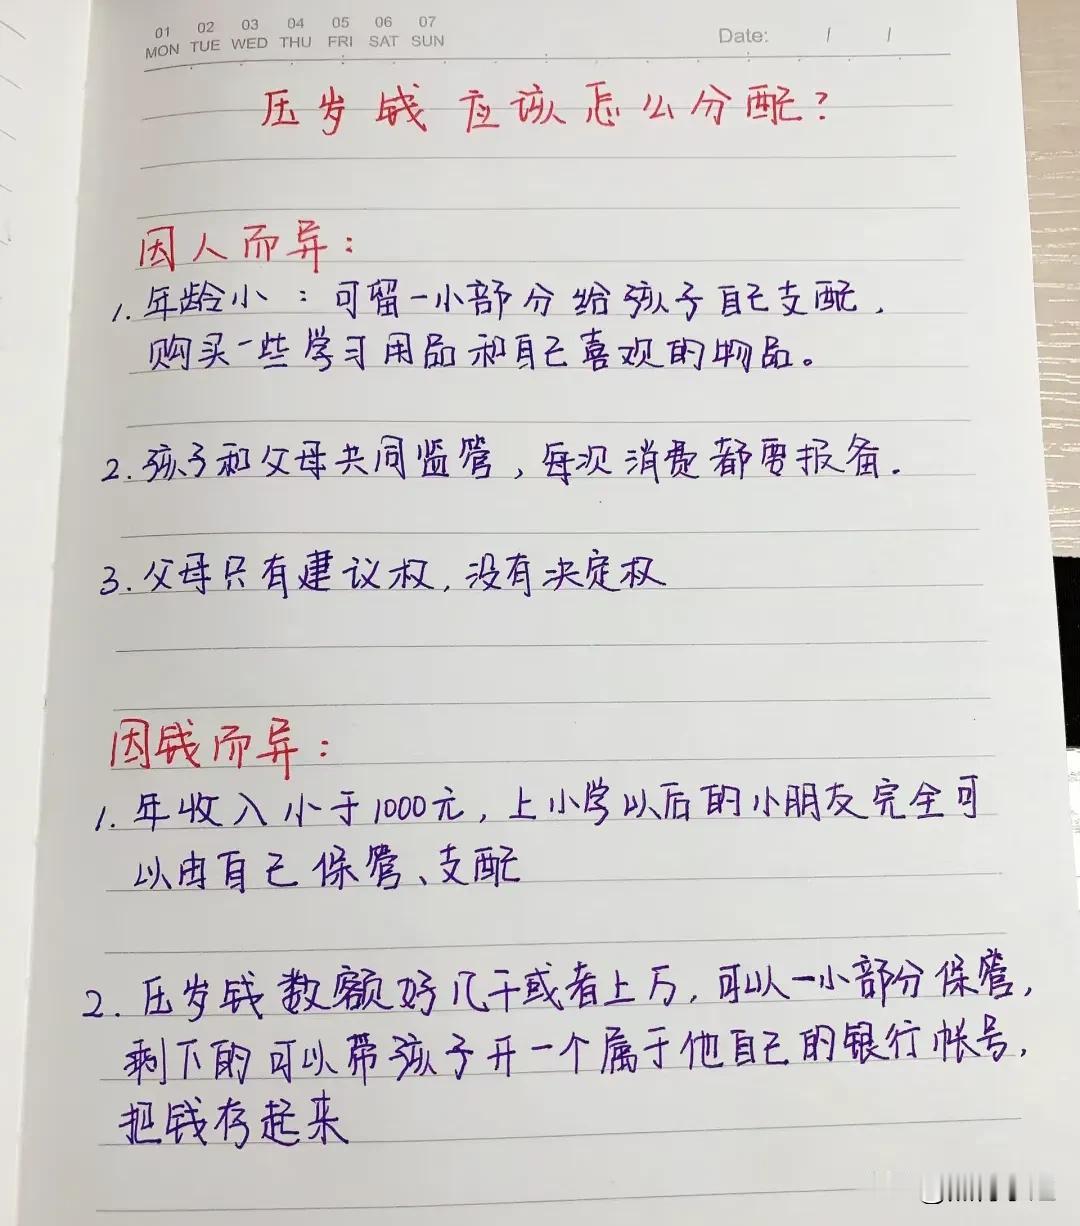 01 02 03 04 05 06 07
MON TUE WED THU FRI SAT SUN
Date: / /
压岁钱应该怎么分配?
因人而异:
1. 年龄小:可留一小部分给孩子自己支配,
购买一些学习用品和自己喜欢的物品。
2. 孩子和父母共同监管,每次消费都要报备.
3. 父母只有建议权,没有决定权
因钱而异:
1. 年收入小于1000元,上小学以后的小朋友完全可
以由自己保管、支配
2. 压岁钱数额好几千或者上万,可以一小部分保管,
剩下的可以带孩子开一个属于他自己的银行帐号,
把钱存起来